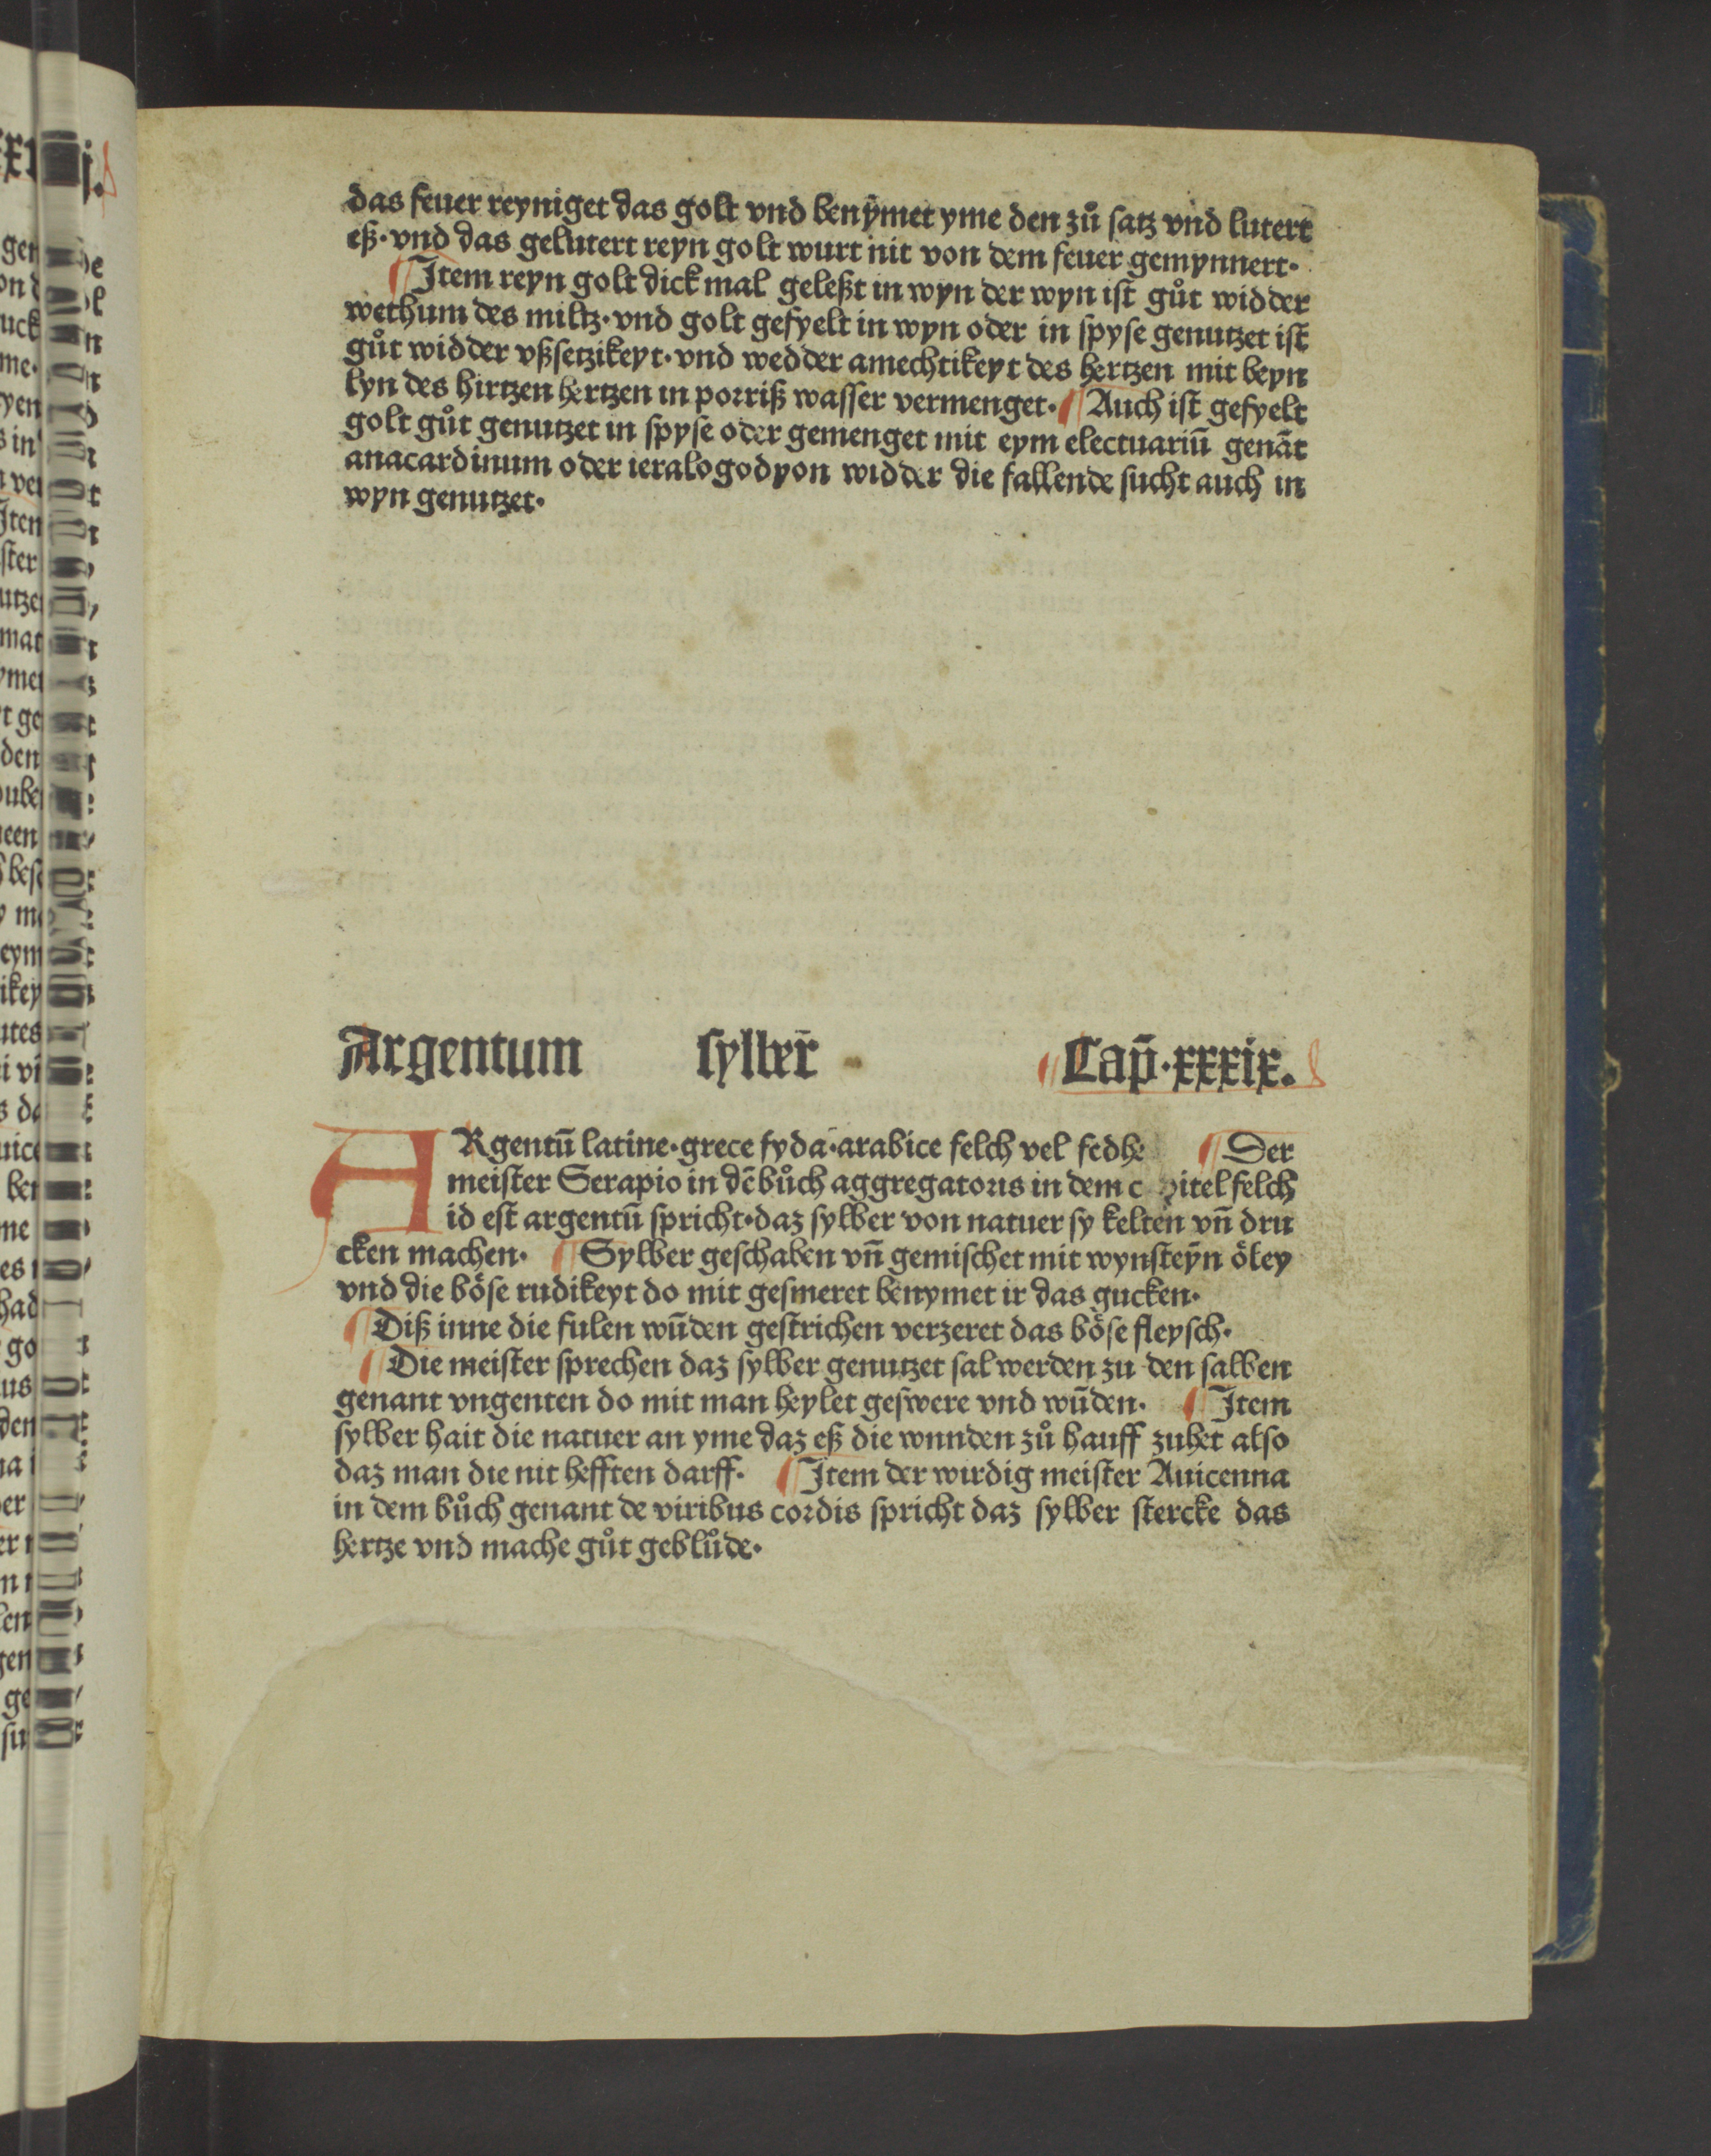 das feuer reyniget das golt vnd benÿmet yme den zů ſatz vnd lutert
eß·vnd das gelutert reyn golt wurt nit von dem feuer gemynnert·
¶Item reyn golt dick mal geleßt in wyn der wyn iſt gůt widder
wethum des miltz·vnd golt gefyelt in wyn oder in ſpyſe genutzet iſt
gůt widder vßſetzikeyt·vnd wedder amechtikeyt des hertzen mit beyn
lyn des hirtzen hertzen in porriß waſſer vermenget·¶Auch iſt gefyelt
golt gůt genutzet in ſpyſe oder gemenget mit eym electuariū genāt
anacardinum oder ieralogodyon widder die fallende ſucht auch in
wyn genutzet·
Argentum ſylber̄ Cap̄·xxxix.
ARgentū latine·grece fyda·arabice felch vel fedhe ¶Der
meiſter Serapio in dē bůch aggregatoris in dem c pitel felch
id eſt argentū ſpricht·daz ſylber von natuer ſy kelten vn̄ dru
cken machen· ¶Sylber geſchaben vn̄ gemiſchet mit wynſteyn öley
vnd die böſe rudikeyt do mit geſmeret benymet ir das gucken·
¶Diß inne die fulen wūden geſtrichen verzeret das böſe fleyſch·
¶Die meiſter ſprechen daz ſylber genutzet ſal werden zu den ſalben
genant vngenten do mit man heylet geſwere vnd wūden· ¶Item
ſylber hait die natuer an yme daz eß die wnnden zů hauff zuhet alſo
daz man die nit hefften darff· ¶Item der wirdig meiſter Auicenna
in dem bůch genant de viribus cordis ſpricht daz ſylber ſtercke das
hertze vnd mache gůt geblůde·